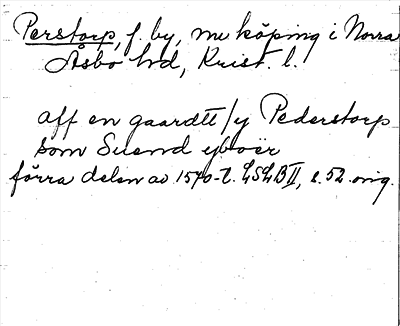 Perstorp, f. by, nu köping i Norra
Åsbo hd, Krist. l.
aff en gaardtt / y Pederstorp
som Suend yboer
förra delen av 1540-t. LSLB II, s. 52. orig.